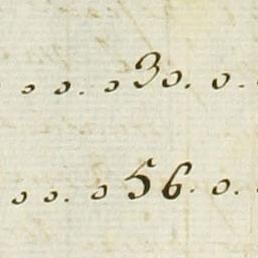 o o. o 30. o.
o o. o 56. o.